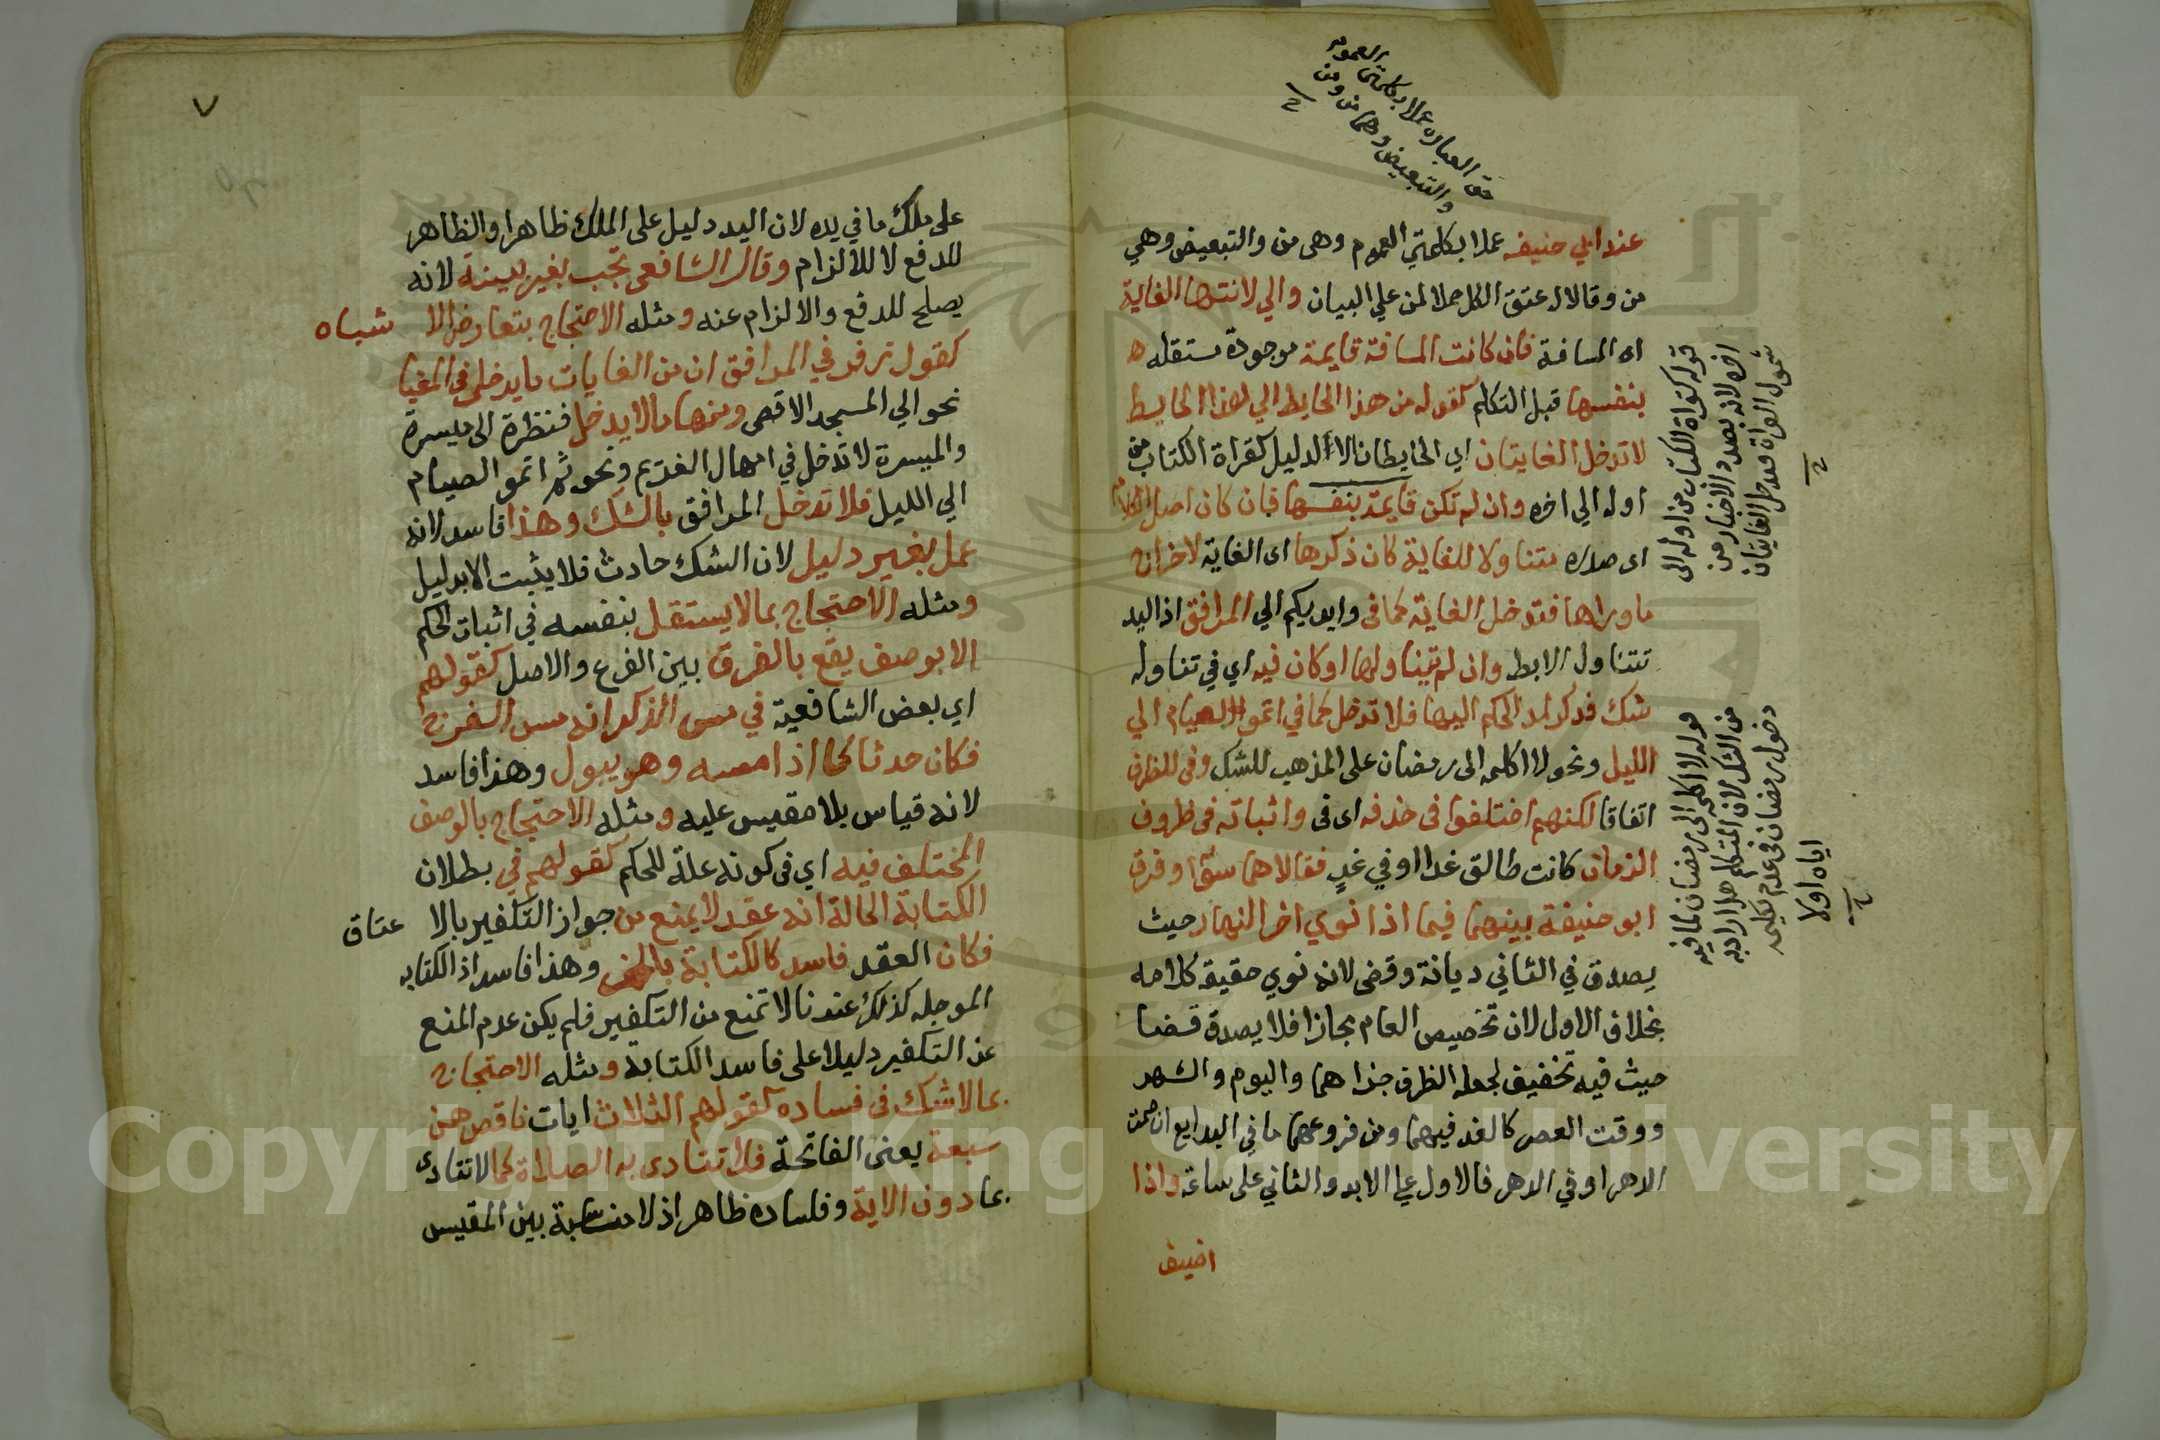 حق العبارة عملا بكلمتي العموم
والتبعيض وهما من ومن
عند ابي حنيفه عملا بكلمتي العموم وهي من والتبعيض وهي
من وقالا له عتق الكل حملا لمن علي البيان والي لانتها الغاية
اي المسافة فان كانت المسافة قايمة موجودة مستقله
بنفسها قبل التكلم كقوله من هذا الحايط الي هذا الحايط
لا تدخل الغايتان اي الحايطان الا لدليل كقراة الكتاب من
اوله الي اخره وان لم تكن قايمة بنفسها فان كان اصل الكلام
اي صدره متناولا للغاية كان ذكرها اي الغاية لاخراج
ما وراها فتدخل الغاية كما في وايديكم الي المرافق اذ اليد
تتناول الابط وان لم يتناولها او كان فيه اي في تناوله
شك فذكر لمد الحكم اليها فلا تدخل كما في اتموا الصيام الي
الليل ونحو لا اكلمه الى رمضان على المذهب للشك وفي للظرف
اتفاقا لكنهم اختلفوا في حذفه اى في واثباته في ظروف
الزمان كانت طالق غدا او في غد فقالا هما سوا وفرق
ابو حنيفة بينهما فيما اذا نوي اخر النهار حيث
يصدق في الثاني ديانة وقضى لانه نوي حقيقة كلامه
بخلاف الاول لان تخصيص العام مجازا فلا يصدق قضا
حيث فيه تخفيف لجعله الظرف جزا هما واليوم والشهر
ووقت العصر كالغد فيهما ومن فروعهما ما في البدايع ان صمت
الدهر او في الدهر فالاول علي الابد والثاني على ساعة واذا
اضيف
قوله كقراة الكتاب من اوله الى
اخره لانه بصدد الاخبار من
شمول القراة فدخل الغايتان
قوله لا اكلمه الى رمضان لما فيه
من الشك لان المتكلم هل اراد به
دخول رمضان في عدم تكليمه
اياه اولا
٧
على ملك ما في يده لان اليد دليل على الملك ظاهرا والظاهر
للدفع لا للالزام وقال الشافعي تجب بغير بينة لانه
يصلح للدفع والالزام عنه ومثله الاحتجاج بتعارض الا شباه
كقول زفر في المرافق ان من الغايات ما يدخل في المغيا
نحو الي المسجد الاقصى ومنها مالا يدخل فنظرة الى ميسرة
والميسرة لا تدخل في امهال الغريم ونحو ثم اتموا الصيام
الي الليل فلا تدخل المرافق بالشك وهذا فاسد لانه
عمل بغير دليل لان الشك حادث فلا يثبت الا بدليل
ومثله الاحتجاج بما لا يستقل بنفسه في اثبات الحكم
الا بوصف يقع بالفرق بين الفرع والاصل كقولهم
اي بعض الشافعية في مس الذكر انه مس الفرج
فكان حدثا كما اذا مسه وهو يبول وهذا فاسد
لانه قياس بلا مقيس عليه ومثله الاحتجاج بالوصف
المختلف فيه اي في كونه علة للحكم كقولهم في بطلان
الكتابة الحالة انه عقد لا يمنع من جواز التكفير بالا عتاق
فكان العقد فاسد كالكتابة بالخمر وهذا فاسد اذ الكتابه
الموجله كذلك عندنا لا تمنع من التكفير فلم يكن عدم المنع
عن التكفير دليلا على فاسد الكتابة ومثله الاحتجاج
بما لا شك في فساده كقولهم الثلاث ايات ناقص من
سبعة يعنى الفاتحة فلا تتادى به الصلاة كما لا تتادى
بما دون الاية وفساده ظاهر اذ لا مناسبة بين المقيس
Copyright © King Saud University